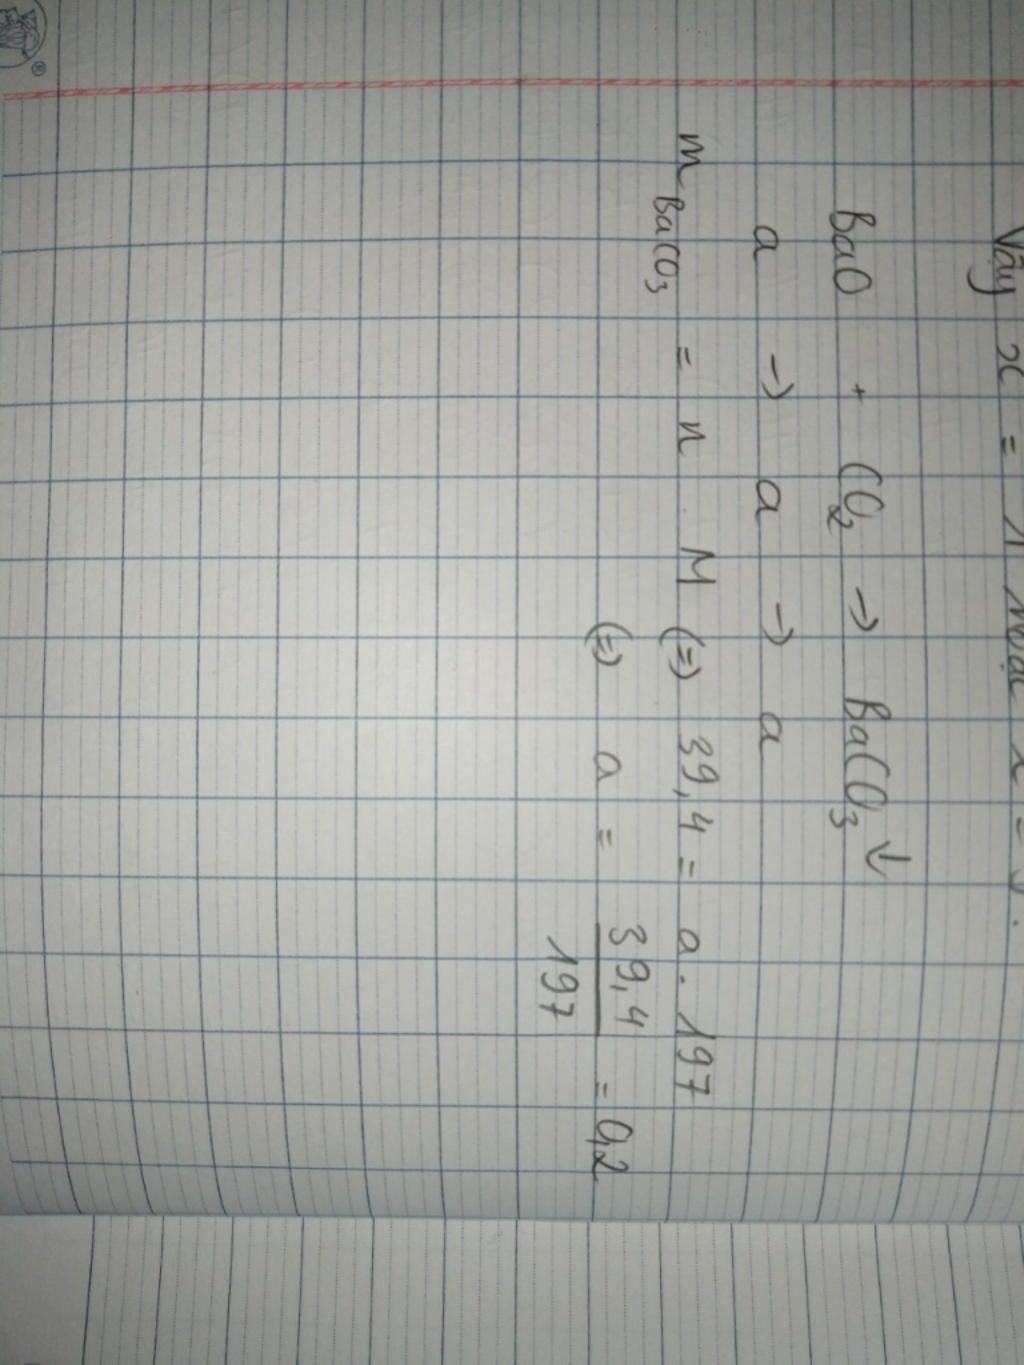 Vậy x = 1 hoặc x = 3.
BaO + CO₂ → BaCO₃ ↓
a → a → a
m BaCO₃ = n . M (=) 39,4 = a . 197
(=) a = 39,4 / 197 = 0,2
®